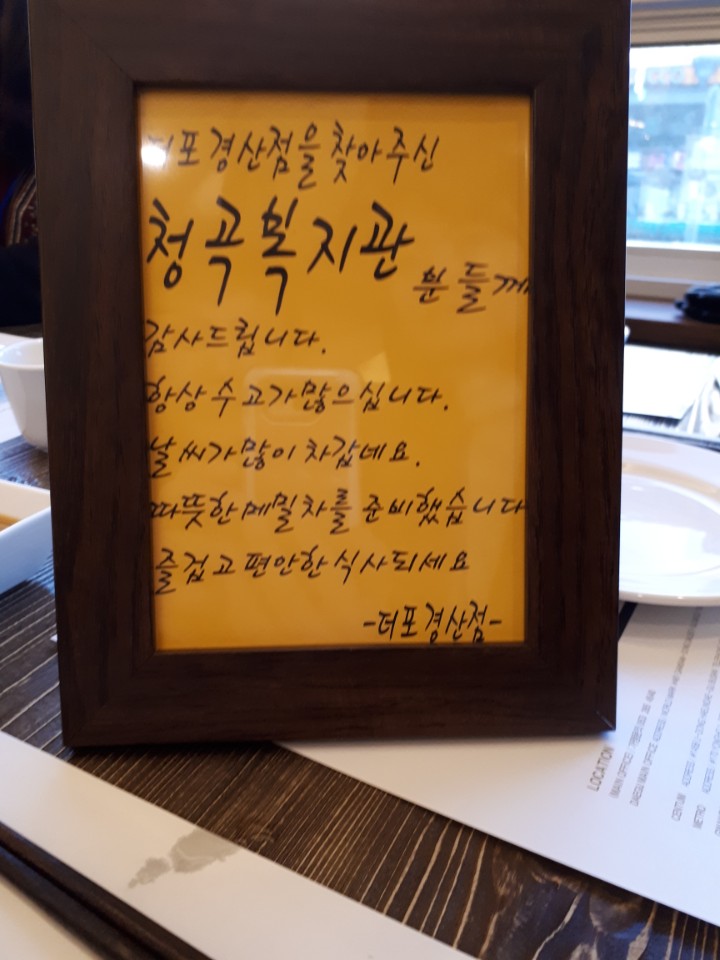 더포경산점을 찾아주신
청곡복지관 분들께
감사드립니다.
항상 수고가 많으십니다.
날씨가 많이 차갑네요.
따뜻한 메밀차를 준비했습니다
즐겁고 편안한 식사되세요
-더포경산점-
LOCATION
CENTUM
METRO